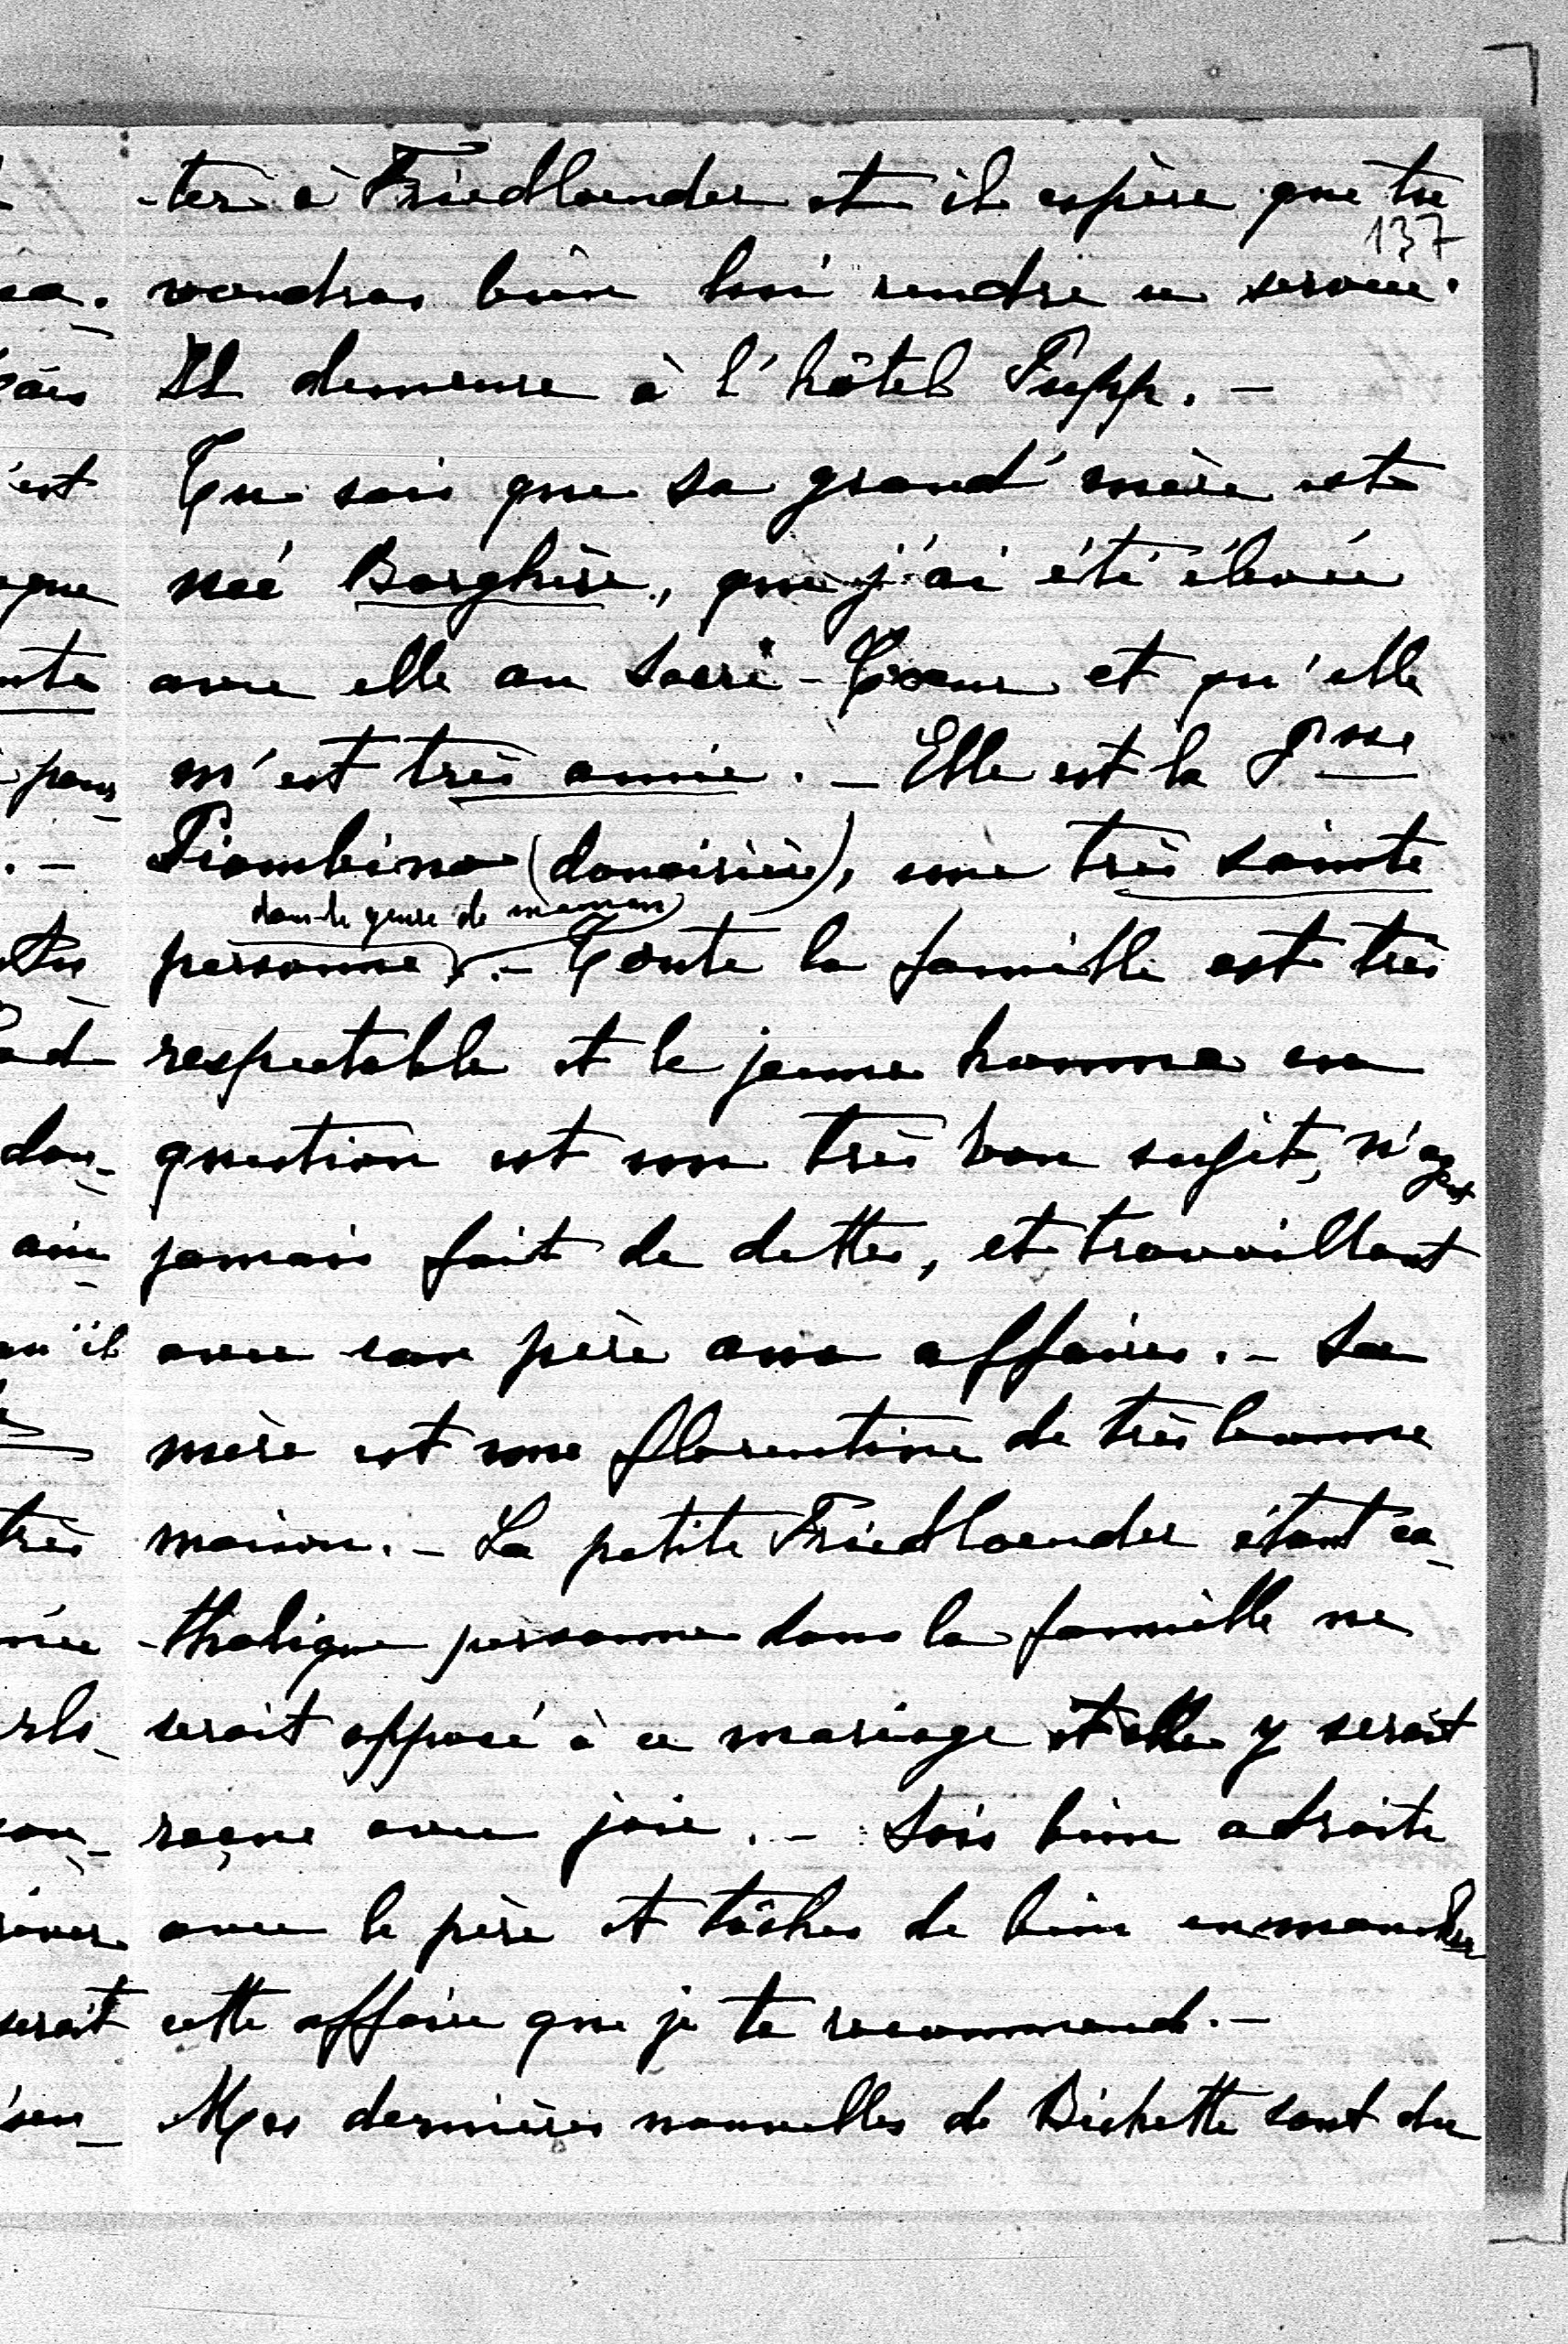 -ter à Friedlaender et il espère que tu
137
voudras bien lui rendre ce service.
Il demeure à l'hôtel Pupp. -
Tu sais que sa grand'mère est
née Borghèse, que j'ai été élevée
avec elle au Sacré-Cœur et qu'elle
m'est très amie. - Elle est la Psse
Piombino (douairière), une très sainte
dans le genre de maman
personne. - Toute la famille est très
respectable et le jeune homme en
question est un très bon sujet, n'ayant
jamais fait de dettes, et travaillant
avec son père aux affaires. - Sa
mère est une florentine de très bonne
maison. - La petite Friedlaender étant ca-
-tholique personne dans la famille ne
serait opposé à ce mariage et elle y serait
reçue avec joie. - Sois bien adroite
avec le père et tâches de bien emmancher
cette affaire que je te recommande. -
Mes dernières nouvelles de Bichette sont du